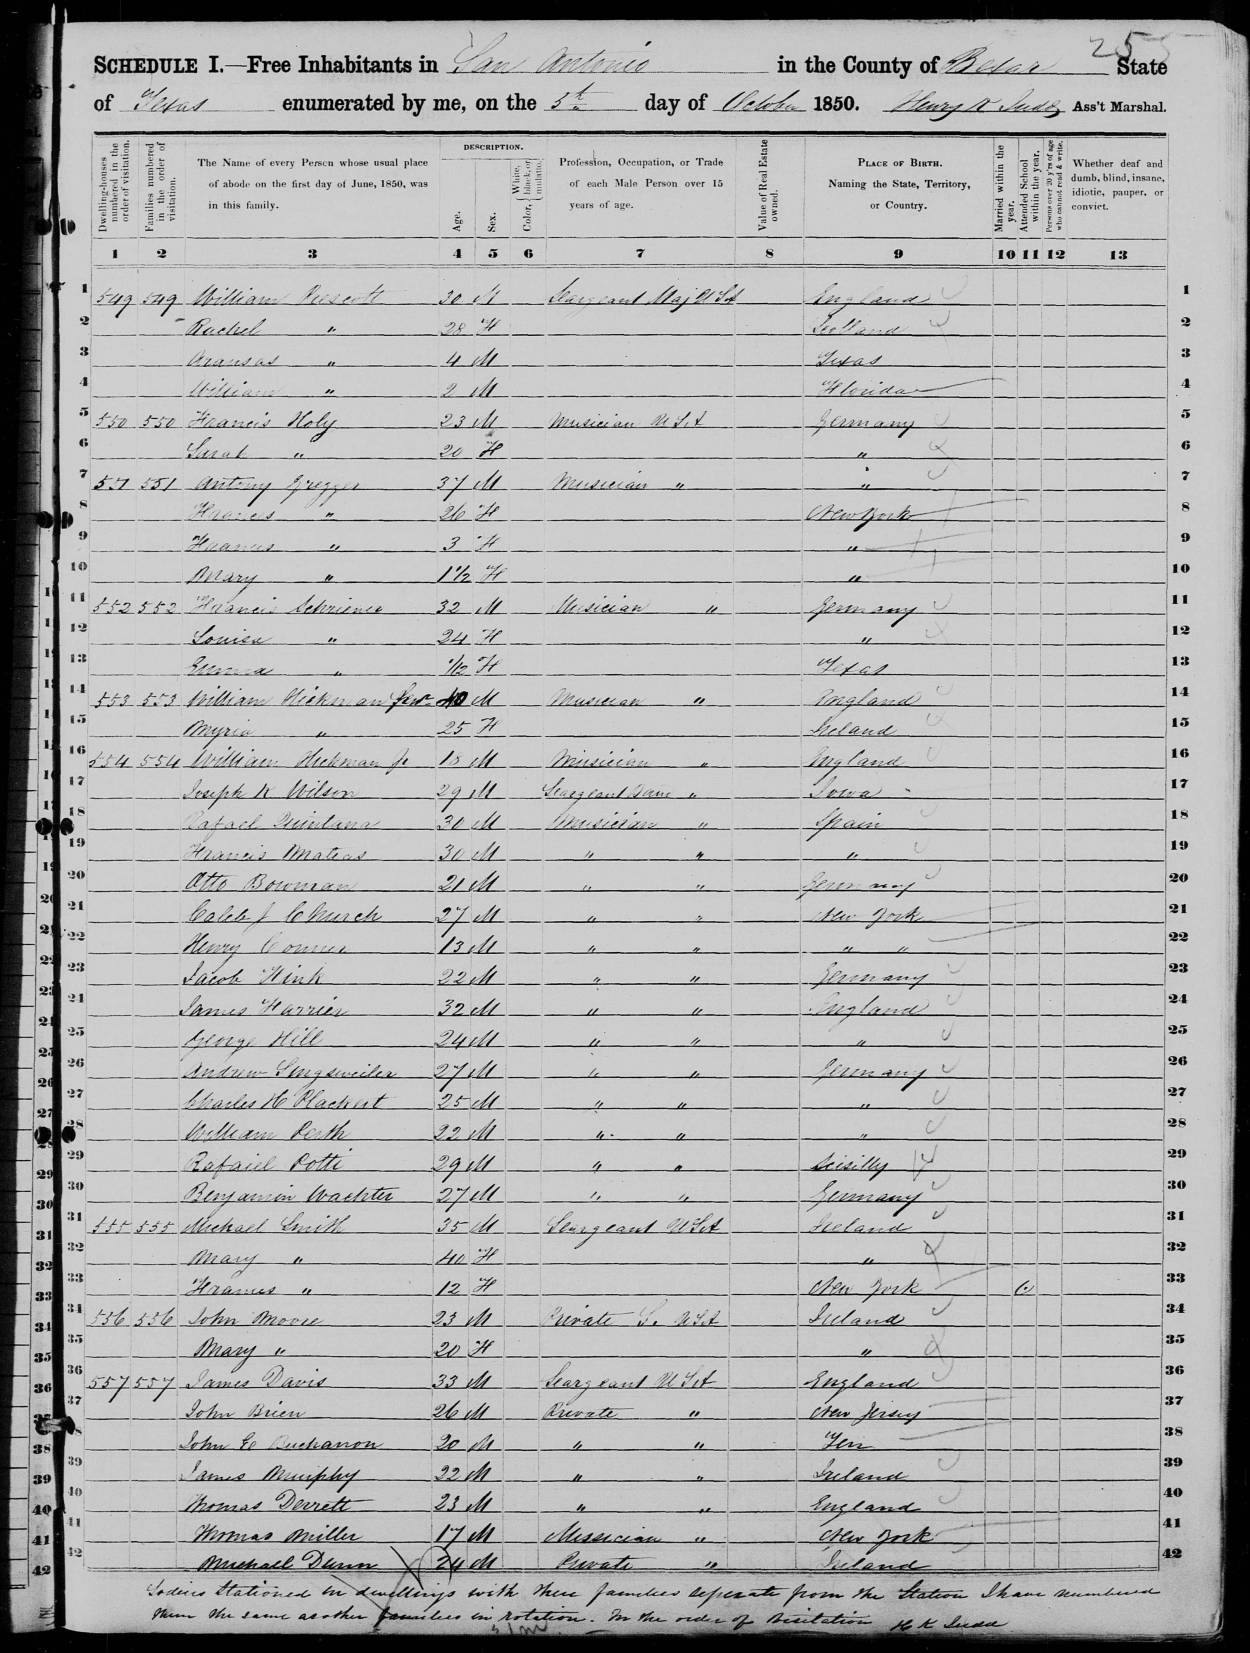 255
SCHEDULE I.—Free Inhabitants in San Antonio in the County of Bexar State
of Texas enumerated by me, on the 5th day of October 1850. Henry K Judd Ass't Marshal.
Dwelling-houses numbered in the order of visitation.
Families numbered in the order of visitation.
The Name of every Person whose usual place of abode on the first day of June, 1850, was in this family.
DESCRIPTION.
Age.
Sex.
Color, { White, black, or mulatto.
Profession, Occupation, or Trade of each Male Person over 15 years of age.
Value of Real Estate owned.
PLACE OF BIRTH. Naming the State, Territory, or Country.
Married within the year.
Attended School within the year.
Persons over 20 y'rs of age who cannot read & write.
Whether deaf and dumb, blind, insane, idiotic, pauper, or convict.
1 2 3 4 5 6 7 8 9 10 11 12 13
1 549 549 William Prescott 30 M Seargeant Maj U S A England 1
2 Rachel " 28 F Scotland 2
3 Aransas " 4 M Texas 3
4 William " 2 M Florida 4
5 550 550 Francis Holy 23 M Musician U S A Germany 5
6 Sarah " 20 F " 6
7 551 551 Antony Gregger 37 M Musician " " 7
8 Frances " 26 F New York 8
9 Frances " 3 F " 9
10 Mary " 1 1/2 F " 10
11 552 552 Francis Schriener 32 M Musician " Germany 11
12 Louisa " 24 F " 12
13 Emma " 1/12 F Texas 13
14 553 553 William Hickman Senr 40 M Musician " England 14
15 Myria " 25 F Ireland 15
16 554 554 William Hickman Jr 18 M Musician " England 16
17 Joseph K Wilson 29 M Seargeant " Iowa 17
18 Rafael Quintana 30 M Musician " Spain 18
19 Francis Mateas 30 M " " " 19
20 Otto Bowman 21 M " " Germany 20
21 Caleb J Church 27 M " " New York 21
22 Henry Conner 13 M " " " " 22
23 Jacob Fink 22 M " " Germany 23
24 James Farrier 32 M " " England 24
25 George Hill 24 M " " " 25
26 Andrew Lingsweiler 27 M " " Germany 26
27 Charles H Plackert 25 M " " " 27
28 William Perth 22 M " " " 28
29 Rafaiel Potti 29 M " " Scisilly 29
30 Benjamin Wachter 27 M " " Germany 30
31 555 555 Michael Smith 35 M Seargeant U S A Ireland 31
32 Mary " 40 F " 32
33 Frances " 12 F New York 33
34 556 556 John Moore 23 M Private S. U S A Ireland 34
35 Mary " 20 F " 35
36 557 557 James Davis 33 M Seargeant U S A England 36
37 John Brien 26 M Private " New Jersey 37
38 John G Buchanon 20 M " " Ten 38
39 James Murphy 22 M " " Ireland 39
40 Thomas Derrett 23 M " " England 40
41 Thomas Miller 17 M Mussician " New York 41
42 Michael Dunn 24 M Private " Ireland 42
Soldiers Stationed in dwellings with their families seperate from the Station I have numbered
them the same as other families in rotation. In the order of Visitation H K Judd